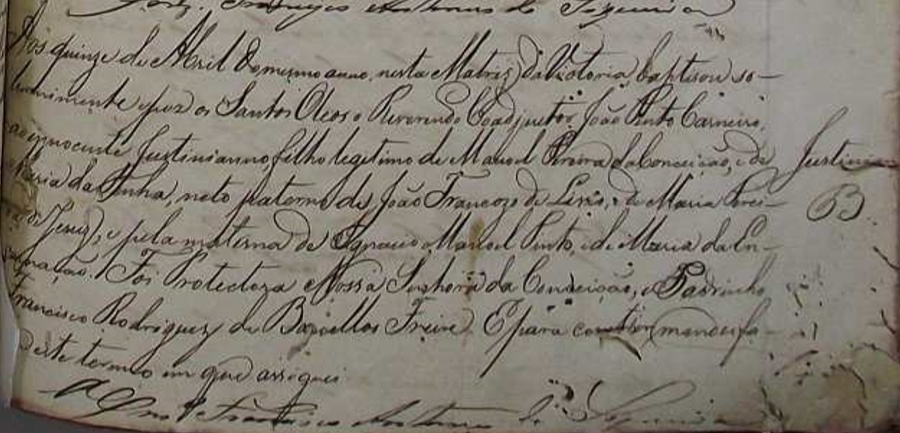 Aos quinze de Abril do mesmo anno, nesta Matriz da Victoria baptisou so-
lemnimente e poz os Santos Oleos o Reverendo Coadjuctor João Pinto Carneiro,
ao innocente Justinianno, filho legitimo de Manoel Pereira da Conceição, e de
Maria da Penha, neto paterno de João Francozo de Lirio, e de Maria Perei-
ra de Jesus, e pela materna de Ignacio Manoel Pinto, e de Maria da En-
carnação. Foi Protectora Nossa Senhora da Conceição, e Padrinho
Francisco Rodriguez de Barcellos Freire. E para constar mandei fa-
deste termo em que assignei
Francisco Antunes de Sequeira
Justinian
B